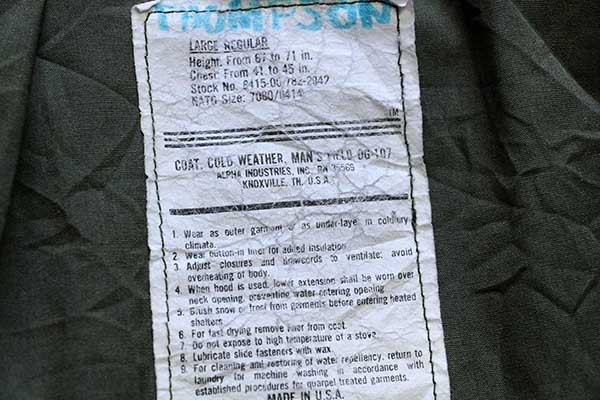 THOMPSON
LARGE REGULAR
Height: From 67 to 71 in.
Chest: From 41 to 45 in.
Stock No. 8415-00-782-2942
NATO Size: 7080/0414
TM
COAT, COLD WEATHER, MAN'S FIELD OG-107
ALPHA INDUSTRIES, INC. RN 35566
KNOXVILLE, TN. U.S.A.
1. Wear as outer garment or as under-layer in cold/dry
climate.
2. Wear button-in liner for added insulation.
3. Adjust closures and drawcords to ventilate; avoid
overheating of body.
4. When hood is used, lower extension shall be worn over
neck opening, preventing water entering opening.
5. Brush snow or frost from garments before entering heated
shelters.
6. For fast drying remove liner from coat.
7. Do not expose to high temperature of a stove.
8. Lubricate slide fasteners with wax.
9. For cleaning and restoring of water repellency, return to
laundry for machine washing in accordance with
established procedures for quarpel treated garments.
MADE IN U.S.A.